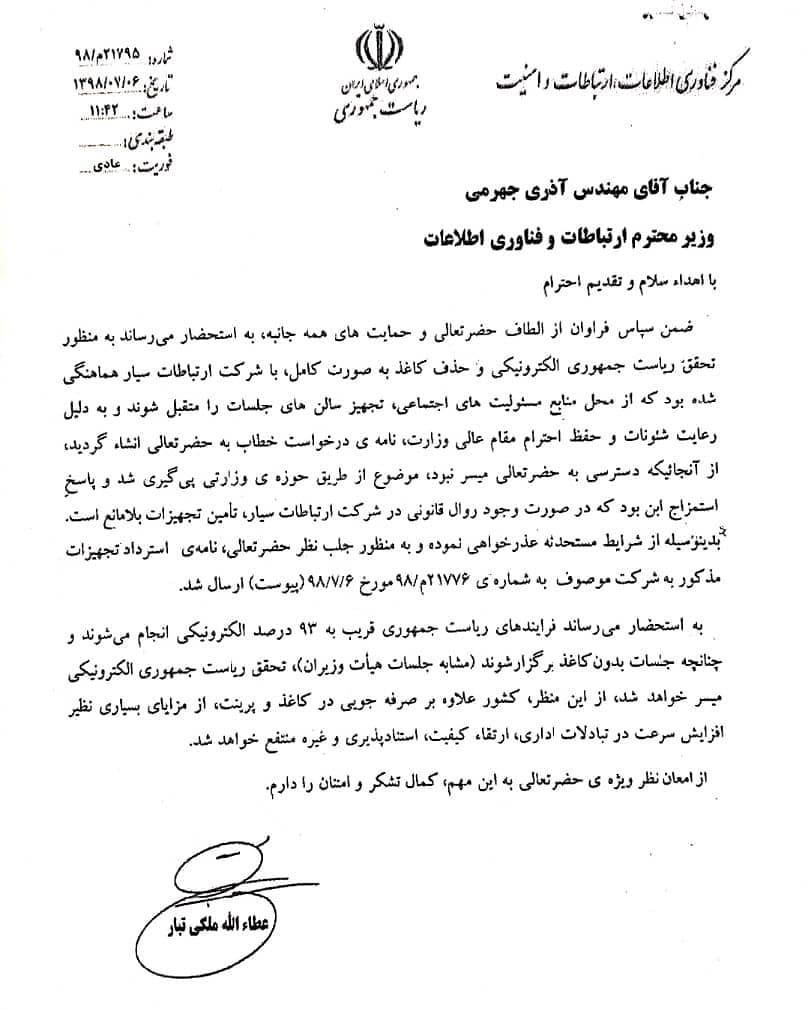 شماره: ۲۱۷۹۵م/۹۸
تاریخ: ۱۳۹۸/۰۷/۰۶
ساعت: ۱۱:۴۲
طبقه بندی:
فوریت: عادی
جمهوری اسلامی ایران
ریاست جمهوری
مرکز فناوری اطلاعات، ارتباطات و امنیت
جناب آقای مهندس آذری جهرمی
وزیر محترم ارتباطات و فناوری اطلاعات
با اهداء سلام و تقدیم احترام
ضمن سپاس فراوان از الطاف حضرتعالی و حمایت های همه جانبه، به استحضار می‌رساند به منظور
تحقق ریاست جمهوری الکترونیکی و حذف کاغذ به صورت کامل، با شرکت ارتباطات سیار هماهنگی
شده بود که از محل منابع مسئولیت های اجتماعی، تجهیز سالن های جلسات را متقبل شوند و به دلیل
رعایت شئونات و حفظ احترام مقام عالی وزارت، نامه ی درخواست خطاب به حضرتعالی انشاء گردید،
از آنجائیکه دسترسی به حضرتعالی میسر نبود، موضوع از طریق حوزه ی وزارتی پی‌گیری شد و پاسخ
استمزاج این بود که در صورت وجود روال قانونی در شرکت ارتباطات سیار، تأمین تجهیزات بلامانع است.
بدینوسیله از شرایط مستحدثه عذرخواهی نموده و به منظور جلب نظر حضرتعالی، نامه‌ی استرداد تجهیزات
مذکور به شرکت موصوف به شماره ی ۲۱۷۷۶م/۹۸ مورخ ۹۸/۷/۶ (پیوست) ارسال شد.
به استحضار می‌رساند فرایندهای ریاست جمهوری قریب به ۹۳ درصد الکترونیکی انجام می‌شوند و
چنانچه جلسات بدون کاغذ برگزار شوند (مشابه جلسات هیأت وزیران)، تحقق ریاست جمهوری الکترونیکی
میسر خواهد شد، از این منظر، کشور علاوه بر صرفه جویی در کاغذ و پرینت، از مزایای بسیاری نظیر
افزایش سرعت در تبادلات اداری، ارتقاء کیفیت، استنادپذیری و غیره منتفع خواهد شد.
از امعان نظر ویژه ی حضرتعالی به این مهم، کمال تشکر و امتنان را دارم.
عطاء الله ملکی تبار